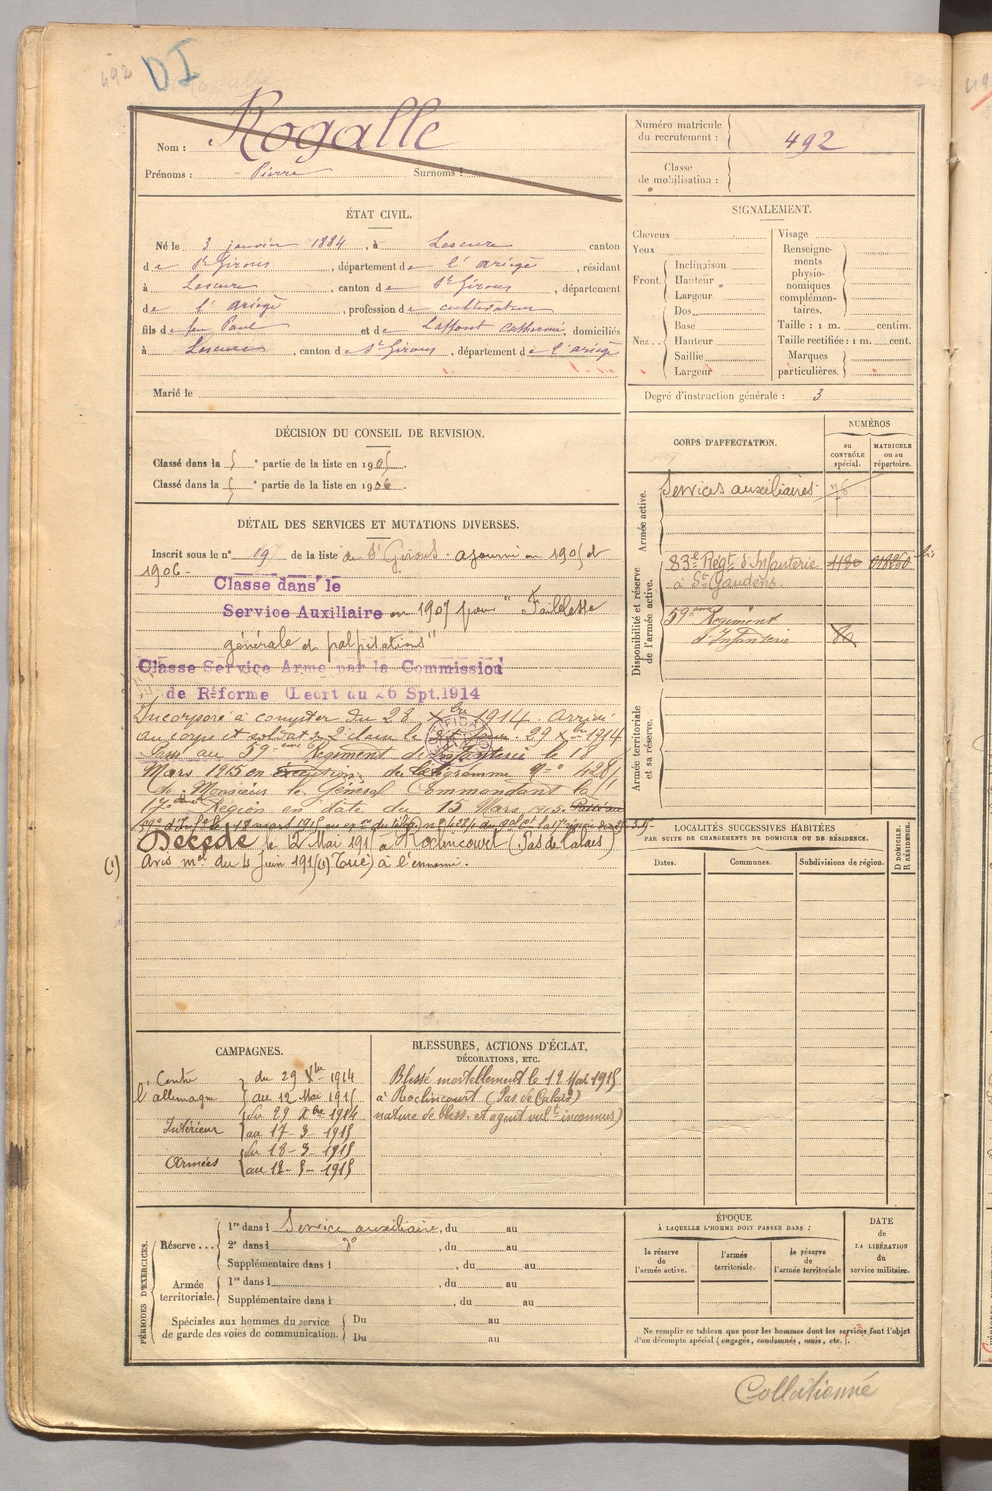 492
DI
Nom : Rogalle
Prénoms : Pierre Surnoms :
Numéro matricule du recrutement : 492
Classe de mobilisation :
ÉTAT CIVIL.
Né le 3 janvier 1884, à Lescure canton
de St Girons, département de l'ariège, résidant
à Lescure, canton de St Girons, département
de l'ariège, profession de cultivateur
fils de feu Paul et de Laffont Catherine, domiciliés
à Lescure, canton de St Girons, département de l'ariège
Marié le
SIGNALEMENT.
Cheveux
Yeux
Front. Inclinaison
Hauteur
Largeur
Nez. Dos
Base
Hauteur
Saillie
Largeur
Visage
Renseignements physionomiques complémentaires.
Taille : 1 m. centim.
Taille rectifiée : 1 m. cent.
Marques particulières.
Degré d'instruction générale : 3
DÉCISION DU CONSEIL DE REVISION.
Classé dans la 5e partie de la liste en 1905.
Classé dans la 5e partie de la liste en 1906.
DÉTAIL DES SERVICES ET MUTATIONS DIVERSES.
Inscrit sous le n° 19 de la liste de St Girons. ajourné en 1905 et
1906 -
Classé dans le
Service Auxiliaire en 1907 pour "Faiblesse
générale et palpitations"
Classé Service Armé par la Commission
de Réforme (Décrt du 26 Spt. 1914
Incorporé à compter du 28 Xbre 1914. arrivé
au corps et soldat de 2e classe le dit jour. 29 Xbre 1914
Passé au 59ème Régiment d'Infanterie le 18
Mars 1915 en exécution du télégramme N° 428/
de Monsieur le Général Commandant la
17ème Région en date du 15 Mars 1915.
Décédé le 12 Mai 1915 à Roclincourt (Pas de Calais)
(1) Avis mel du 4 Juin 1915 (1) Tué à l'ennemi.
CORPS D'AFFECTATION.
NUMÉROS
au CONTRÔLE spécial.
MATRICULE ou au répertoire.
Armée active.
Services auxiliaires 76
Disponibilité et réserve de l'armée active.
83e Régt d'Infanterie 1180 018260 bis
à St Gaudens.
59ème Régiment
d'Infanterie
Armée territoriale et sa réserve.
LOCALITÉS SUCCESSIVES HABITÉES
PAR SUITE DE CHANGEMENTS DE DOMICILE OU DE RÉSIDENCE.
Dates. Communes. Subdivisions de région.
D DOMICILE. R RÉSIDENCE.
CAMPAGNES.
Contre l'allemagne du 29 Xbre 1914
au 12 Mai 1915
Intérieur du 29 Xbre 1914
au 17-3-1915
Armées du 18-3-1915
au 12-5-1915
BLESSURES, ACTIONS D'ÉCLAT,
DÉCORATIONS, ETC.
Blessé mortellement le 12 Mai 1915
à Roclincourt (Pas de Calais)
nature de bless. et agent vult inconnus)
PÉRIODES D'EXERCICES.
Réserve... 1re dans l Service auxiliaire, du au
2e dans l do, du au
Supplémentaire dans l, du au
Armée territoriale. 1re dans l, du au
Supplémentaire dans l, du au
Spéciales aux hommes du service de garde des voies de communication. Du au
Du au
ÉPOQUE
À LAQUELLE L'HOMME DOIT PASSER DANS :
la réserve de l'armée active.
l'armée territoriale.
la réserve de l'armée territoriale
DATE de LA LIBÉRATION du service militaire.
Ne remplir ce tableau que pour les hommes dont les services font l'objet
d'un décompte spécial (engagés, condamnés, omis, etc.).
Collationné